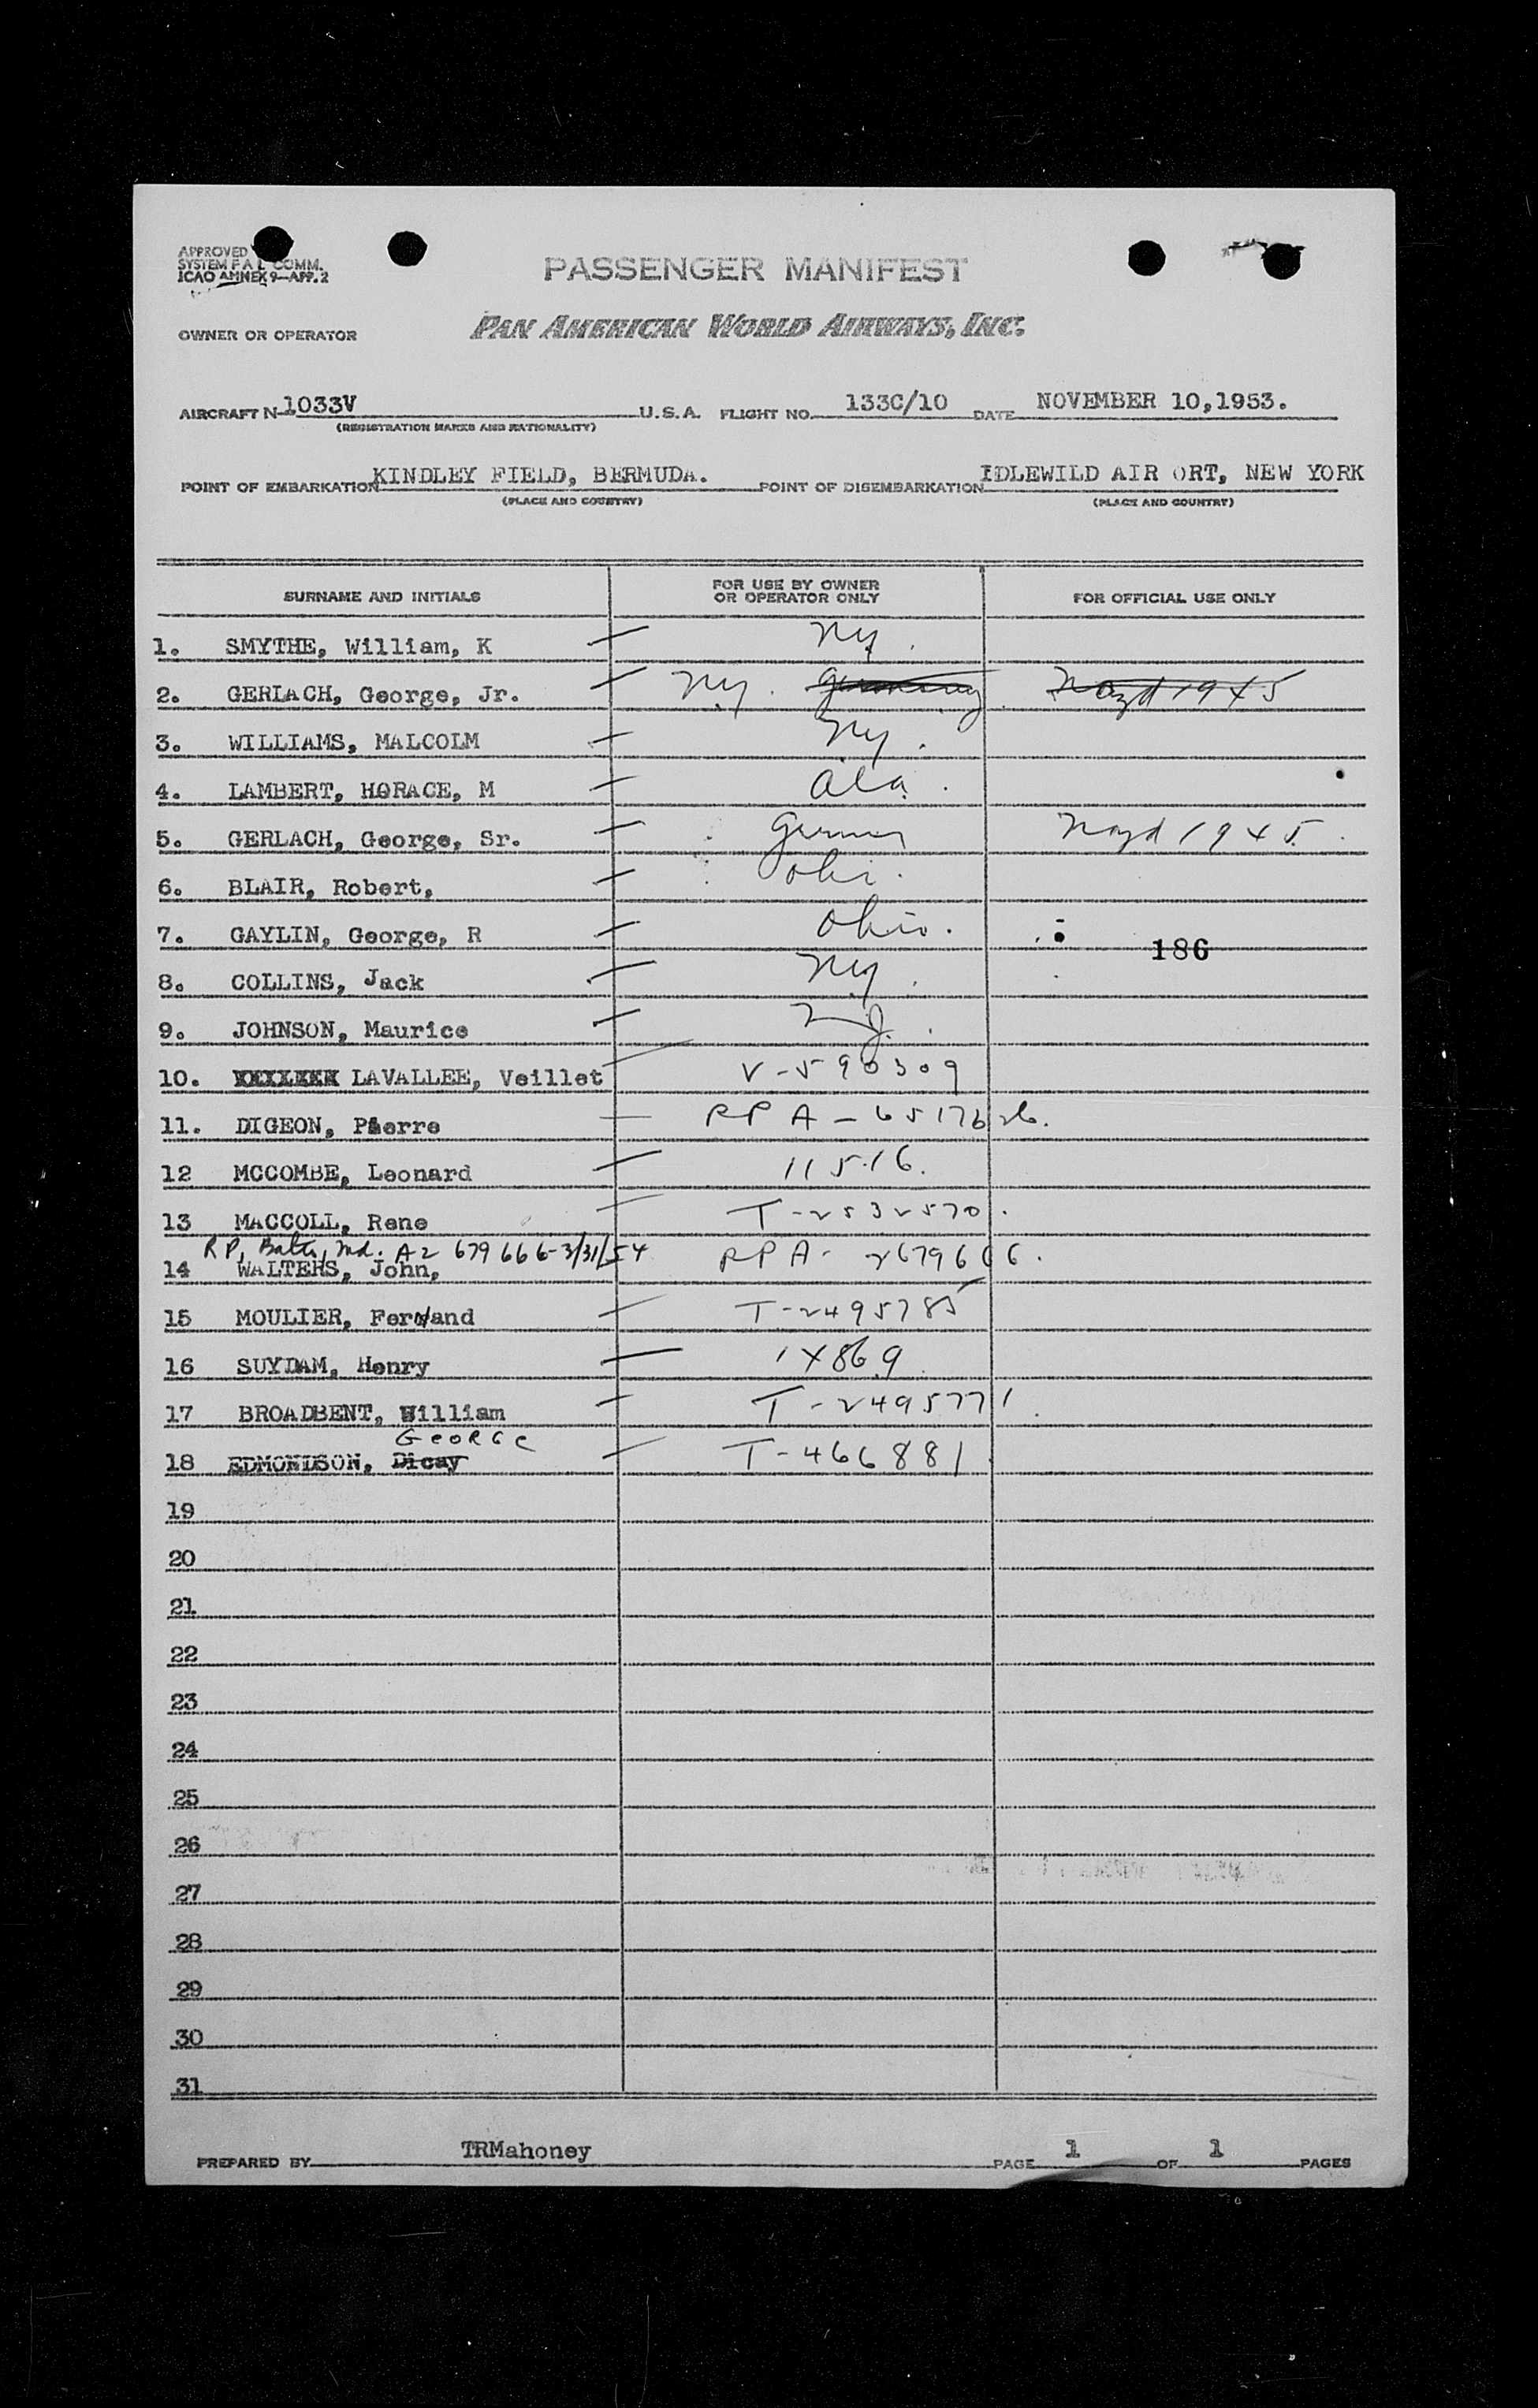 APPROVED
SYSTEM F A L COMM.
ICAO ANNEX 9—APP. 2
PASSENGER MANIFEST
OWNER OR OPERATOR PAN AMERICAN WORLD AIRWAYS, INC.
AIRCRAFT N 1033V U.S.A. FLIGHT NO. 133C/10 DATE NOVEMBER 10,1953.
(REGISTRATION MARKS AND NATIONALITY)
POINT OF EMBARKATION KINDLEY FIELD, BERMUDA. POINT OF DISEMBARKATION IDLEWILD AIR ORT, NEW YORK
(PLACE AND COUNTRY) (PLACE AND COUNTRY)
SURNAME AND INITIALS FOR USE BY OWNER OR OPERATOR ONLY FOR OFFICIAL USE ONLY
1. SMYTHE, William, K — NY.
2. GERLACH, George, Jr. — NY. Germany 1945
3. WILLIAMS, MALCOLM — NY.
4. LAMBERT, HORACE, M — Ala.
5. GERLACH, George, Sr. — 1945.
6. BLAIR, Robert, —
7. GAYLIN, George, R — Ohio.
186
8. COLLINS, Jack — NY.
9. JOHNSON, Maurice — NJ.
10. LAVALLEE, Veillet V-590309
11. DIGEON, Pierre — RP A-6517626.
12 MCCOMBE, Leonard — 11516.
13 MACCOLL, Rene — T-2532570.
RP, Balto, Md. A2 679 666-3/31/54
14 WALTERS, John, RP A- 2679666.
15 MOULIER, Fernand — T-2495785
16 SUYDAM, Henry — 14869
17 BROADBENT, William — T-2495771
GEORGE
18 EDMONDSON, Dicay — T-466881
19
20
21
22
23
24
25
26
27
28
29
30
31
PREPARED BY TRMahoney PAGE 1 OF 1 PAGES